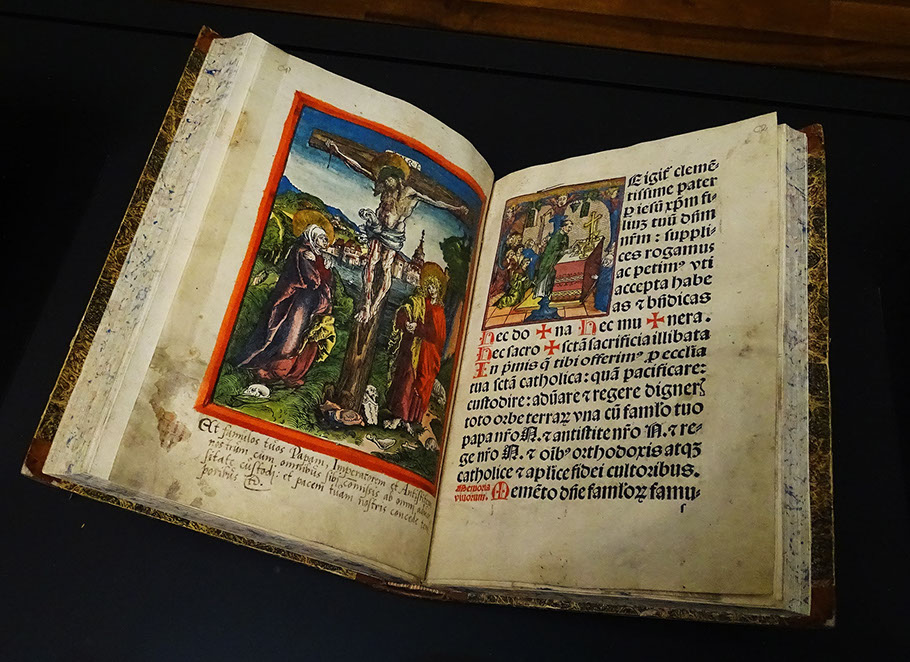 Et famulos tuos Papam, Imperatorem et Antistitem
nostrum cum omnibus sibi comissis ab omni adver
sitate custodi: et pacem tuam nostris concede tem
poribus
E igit᷑ clemē-
tissime pater
ꝑ iesū xp̄m fi-
liuꝫ tuū dn̄m
nr̄m : suppli-
ces rogamus
ac petimꝰ vti
accepta habe
as ⁊ bn̄dicas
hec do ✠ na hec mu ✠ nera.
hec sacro ✠ sctā sacrificia illibata
In p̄mis q̄ tibi offerimꝰ ꝓ ecclīa
tua sctā catholica: quā pacificare:
custodire: adūare ⁊ regere digneꝛꝭ
toto orbe terraꝝ vna cū famľo tuo
papa nr̄o N. ⁊ antistite nr̄o N. ⁊ re-
ge nr̄o N. ⁊ oībꝰ orthodoxis atqꝫ
catholice ⁊ ap̄lice fidei cultoribus.
Memoria
viuorum. Memēto dn̄e famľoꝝ famu-